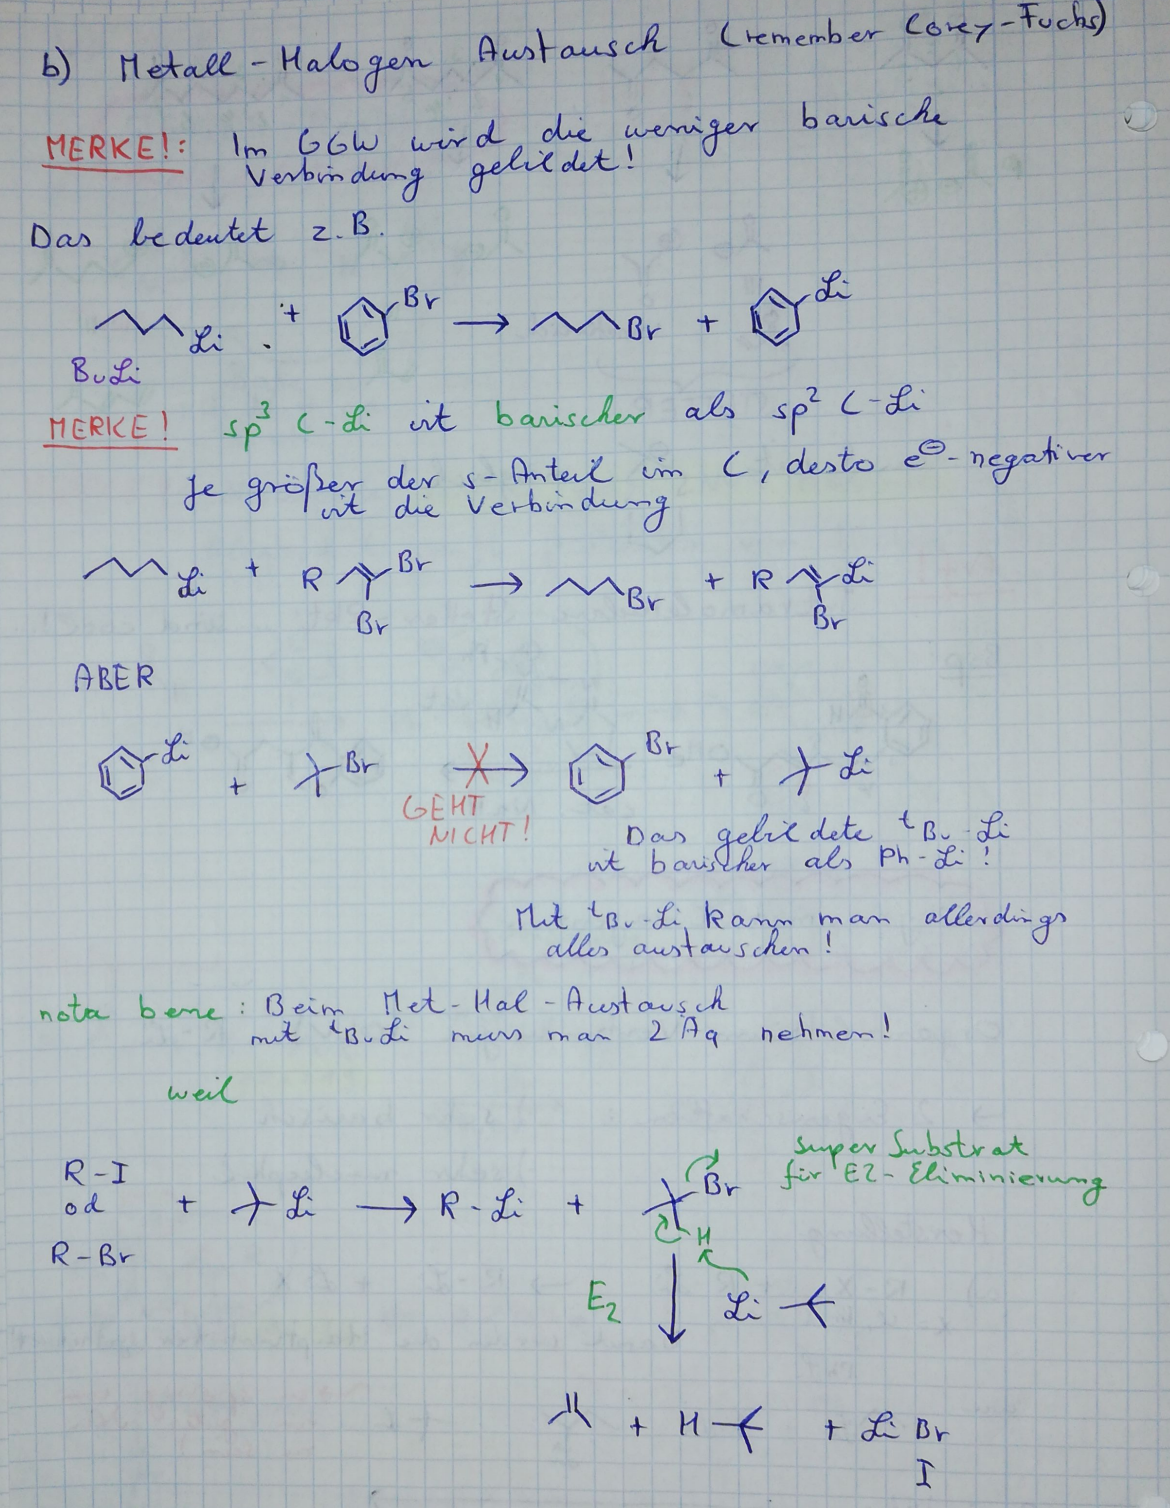 b) Metall-Halogen Austausch (remember Corey-Fuchs)
MERKE!: Im GGW wird die weniger basische
Verbindung gebildet!
Das bedeutet z.B.
Li + Br → Br + Li
BuLi
MERKE! sp³ C-Li ist basischer als sp² C-Li
Je größer der s-Anteil im C, desto e⊖-negativer
ist die Verbindung
Li + R Br → Br + R Li
Br Br
ABER
Li + Br → Br + Li
GEHT
NICHT!
Das gebildete ᵗBu-Li
ist basischer als Ph-Li!
Mit ᵗBu-Li kann man allerdings
alles austauschen!
nota bene: Beim Met-Hal-Austausch
mit ᵗBuLi muss man 2 Äq nehmen!
weil
super Substrat
für E2-Eliminierung
R-I
od + Li → R-Li + Br
R-Br
H
E₂ Li
+ H + Li Br
I